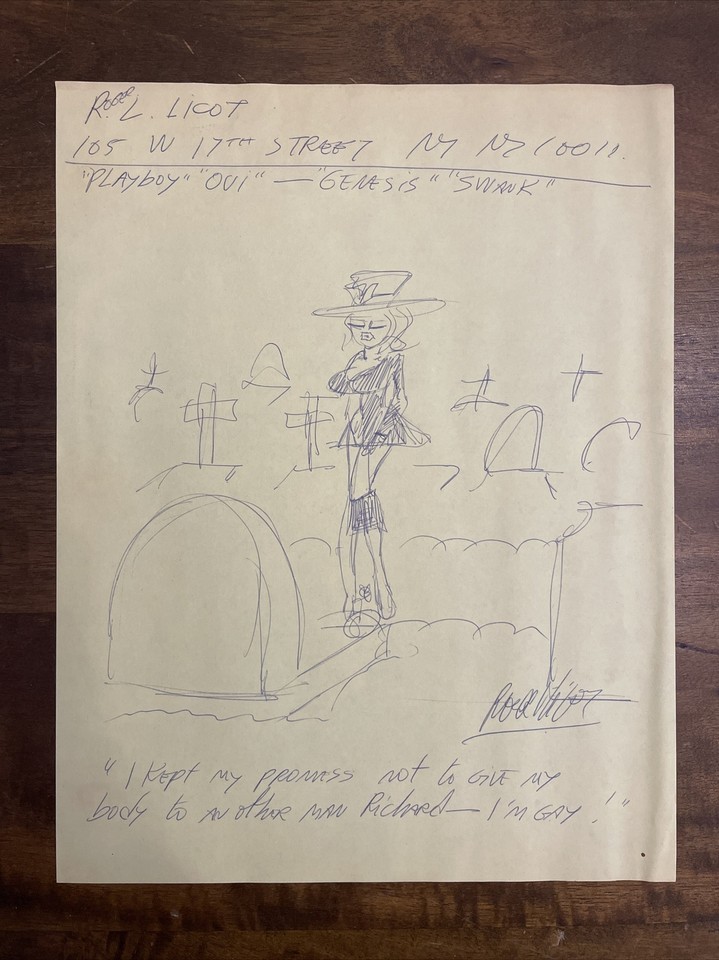 Roger L. LICOT
105 W 17TH STREET NY NY 10011.
"PLAYboy" "OUI" — "GENESIS" "SWANK"
"I KEPT MY PROMESS NOT TO GIVE MY
body to AN other MAN Richard — I'M GAY !"